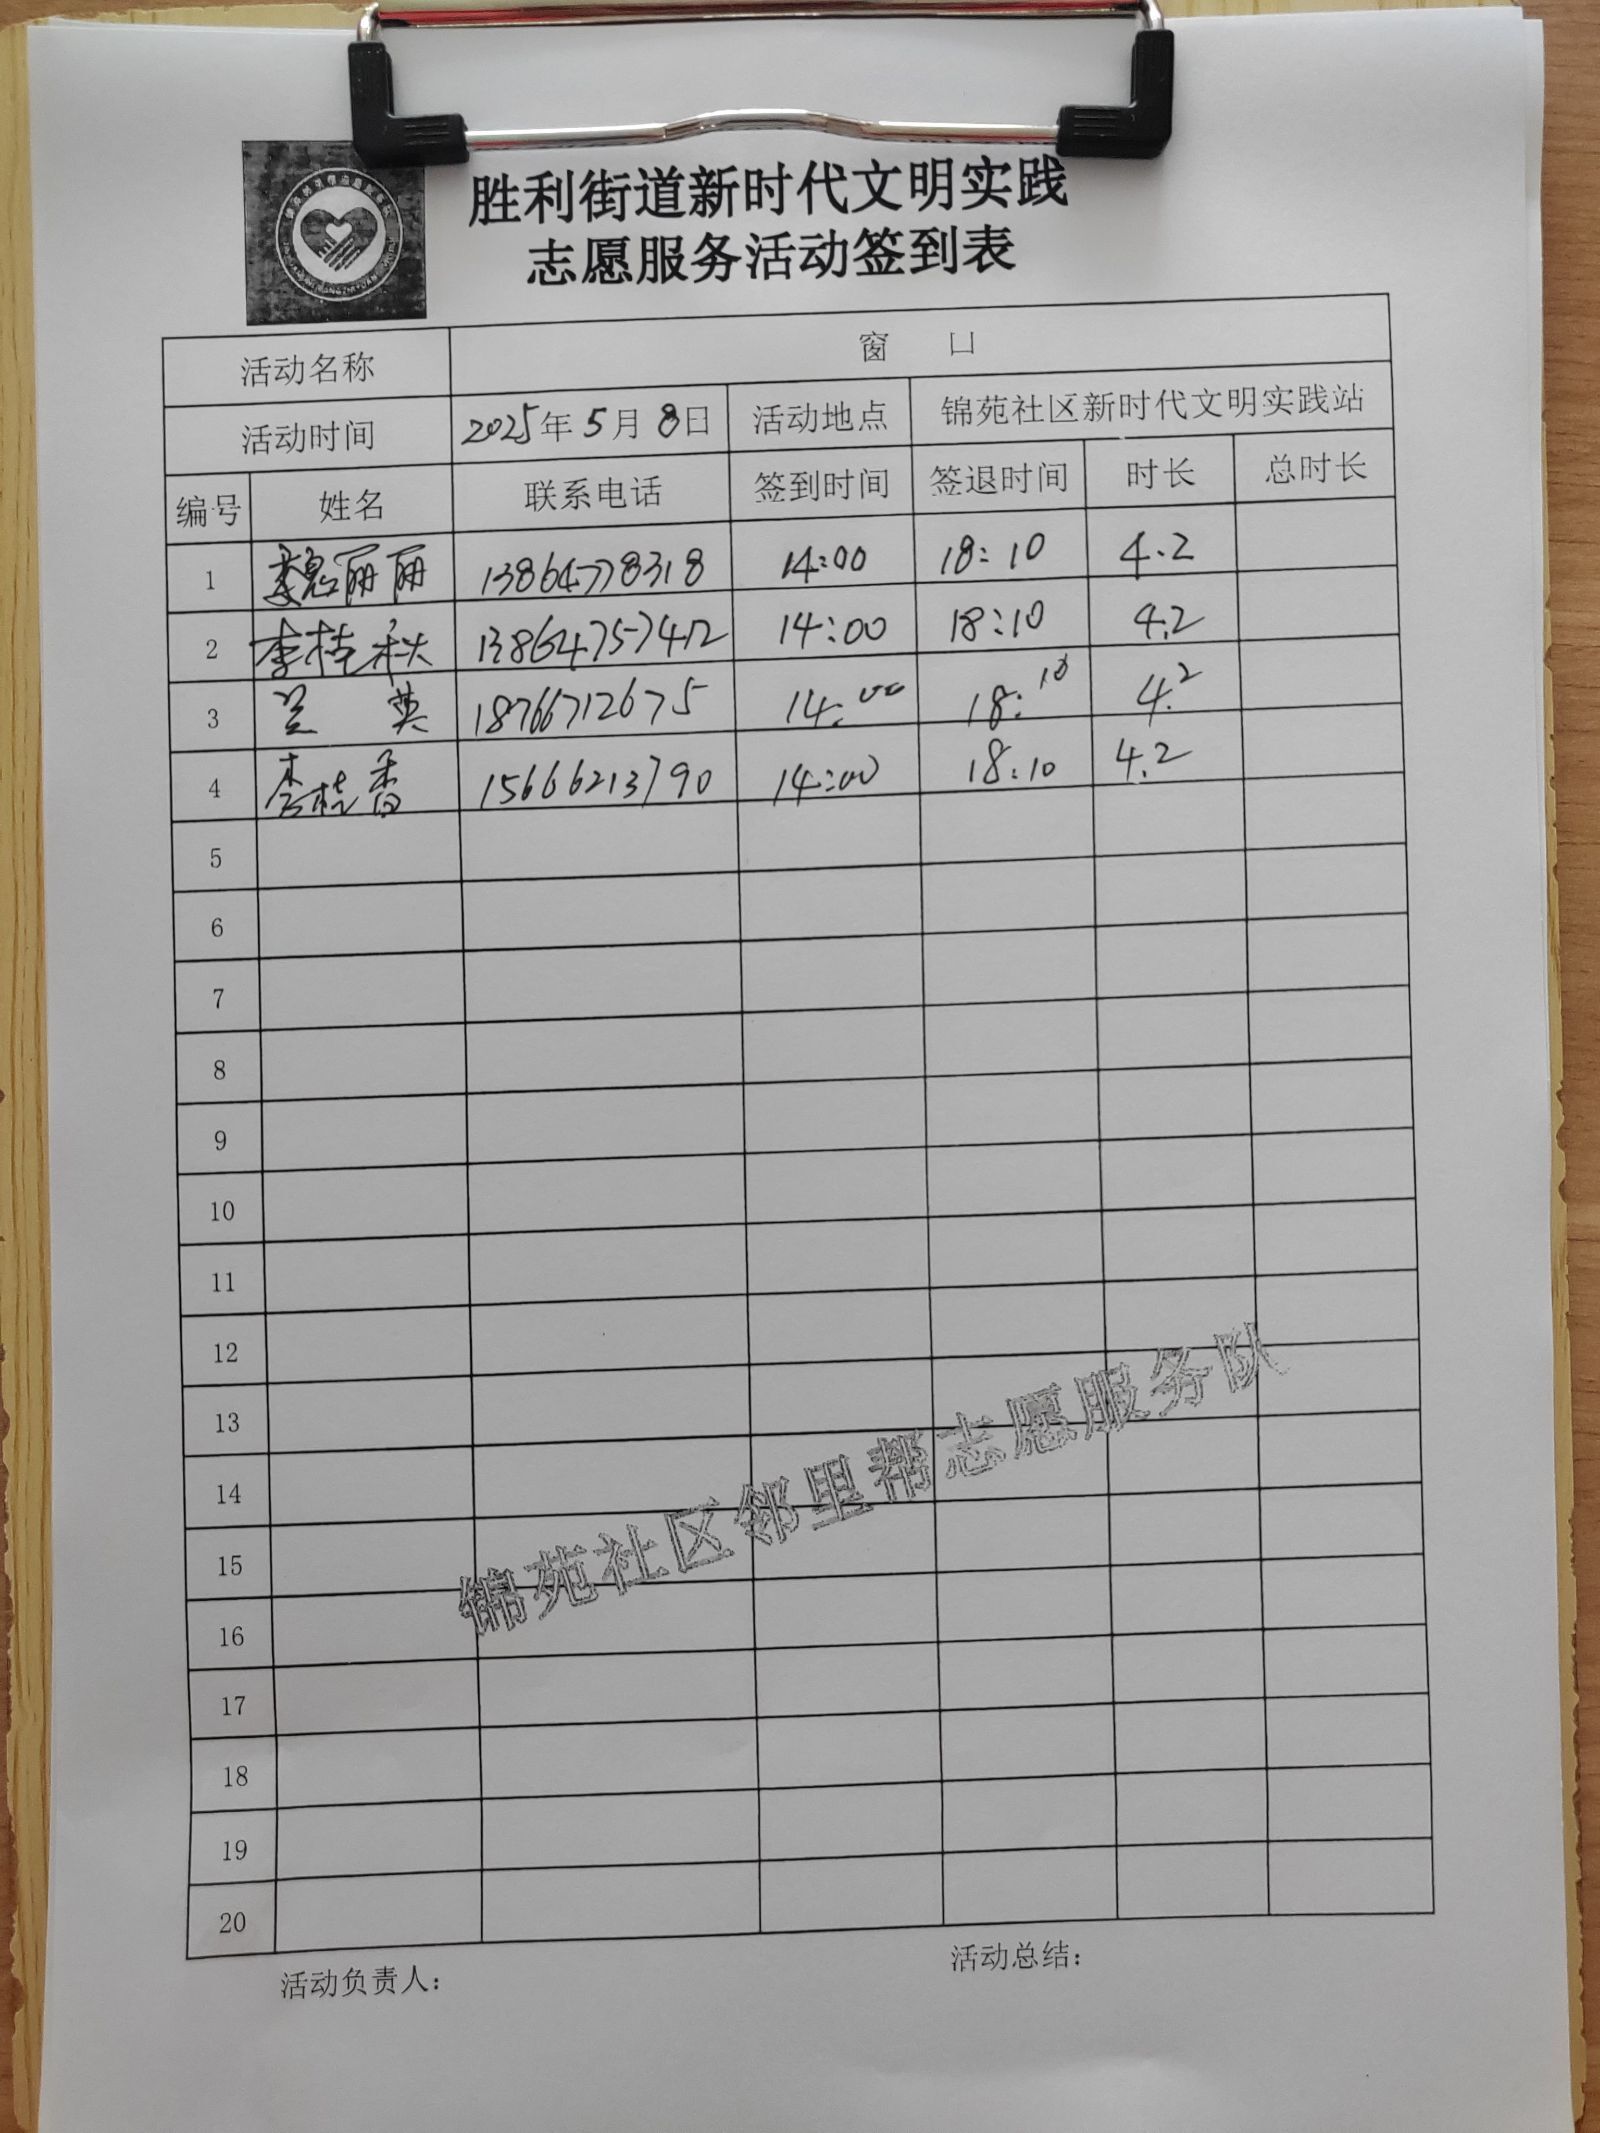 胜利街道新时代文明实践
志愿服务活动签到表
活动名称 窗 口
活动时间 2025年5月8日 活动地点 锦苑社区新时代文明实践站
编号 姓名 联系电话 签到时间 签退时间 时长 总时长
1 魏丽丽 13864778318 14:00 18:10 4.2
2 李桂秋 13864757412 14:00 18:10 4.2
3 兰英 18766712675 14:00 18:10 4.2
4 李桂香 15666213790 14:00 18:10 4.2
5
6
7
8
9
10
11
12
13
14
15
16
17
18
19
20
锦苑社区邻里帮志愿服务队
活动负责人： 活动总结：